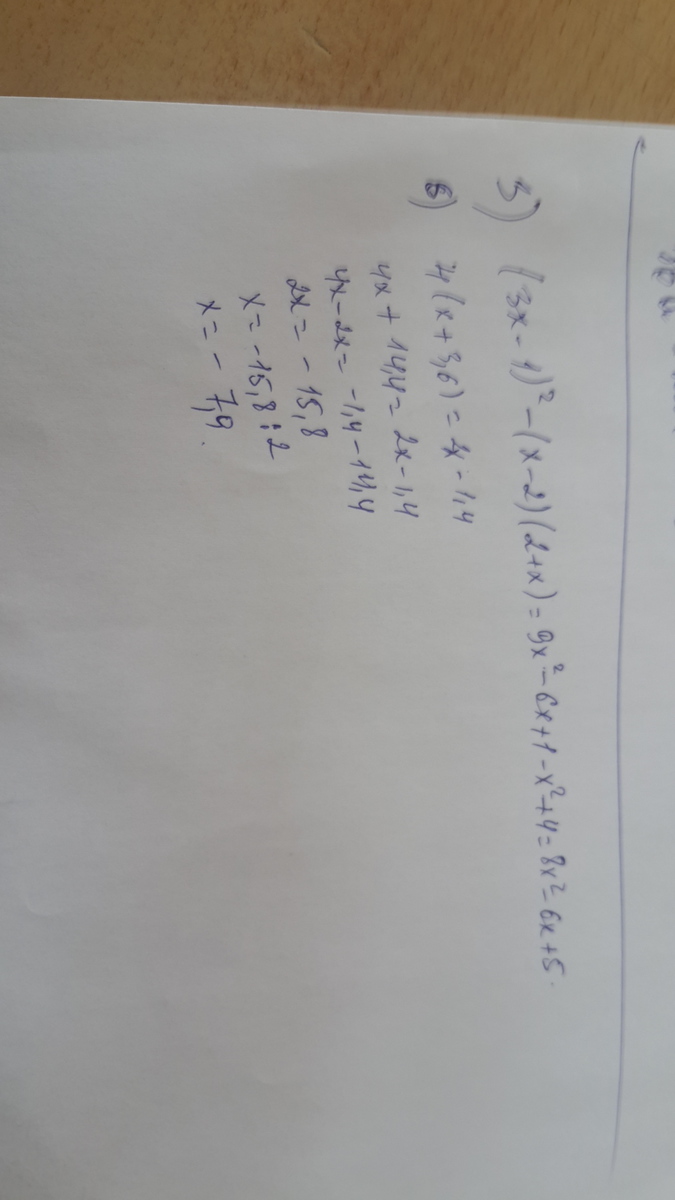 3) (3x-1)² - (x-2)(2+x) = 9x² - 6x + 1 - x² + 4 = 8x² - 6x + 5.
6) 4(x+3,6) = 2x - 1,4
4x + 14,4 = 2x - 1,4
4x - 2x = -1,4 - 14,4
2x = - 15,8
x = -15,8 : 2
x = - 7,9.